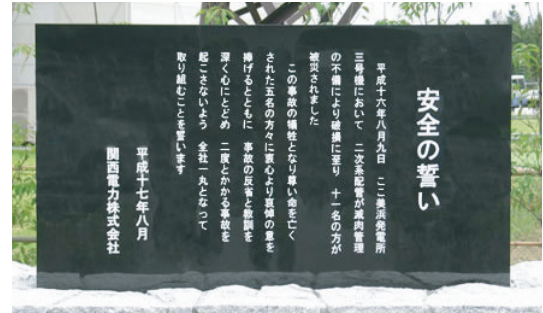 安全の誓い
平成十六年八月九日 ここ美浜発電所
三号機において 二次系配管が減肉管理
の不備により破損に至り 十一名の方が
被災されました
この事故の犠牲となり尊い命を亡く
された五名の方々に衷心より哀悼の意を
捧げるとともに 事故の反省と教訓を
深く心にとどめ 二度とかかる事故を
起こさないよう 全社一丸となって
取り組むことを誓います
平成十七年八月
関西電力株式会社